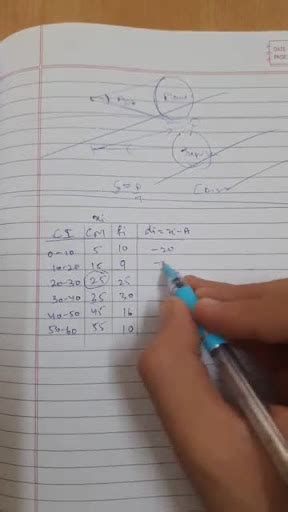 DATE
PAGE
xi
CI CM fi di=xi-A
0-10 5 10 -20
10-20 15 9
20-30 25 25
30-40 35 30
40-50 45 16
50-60 55 10